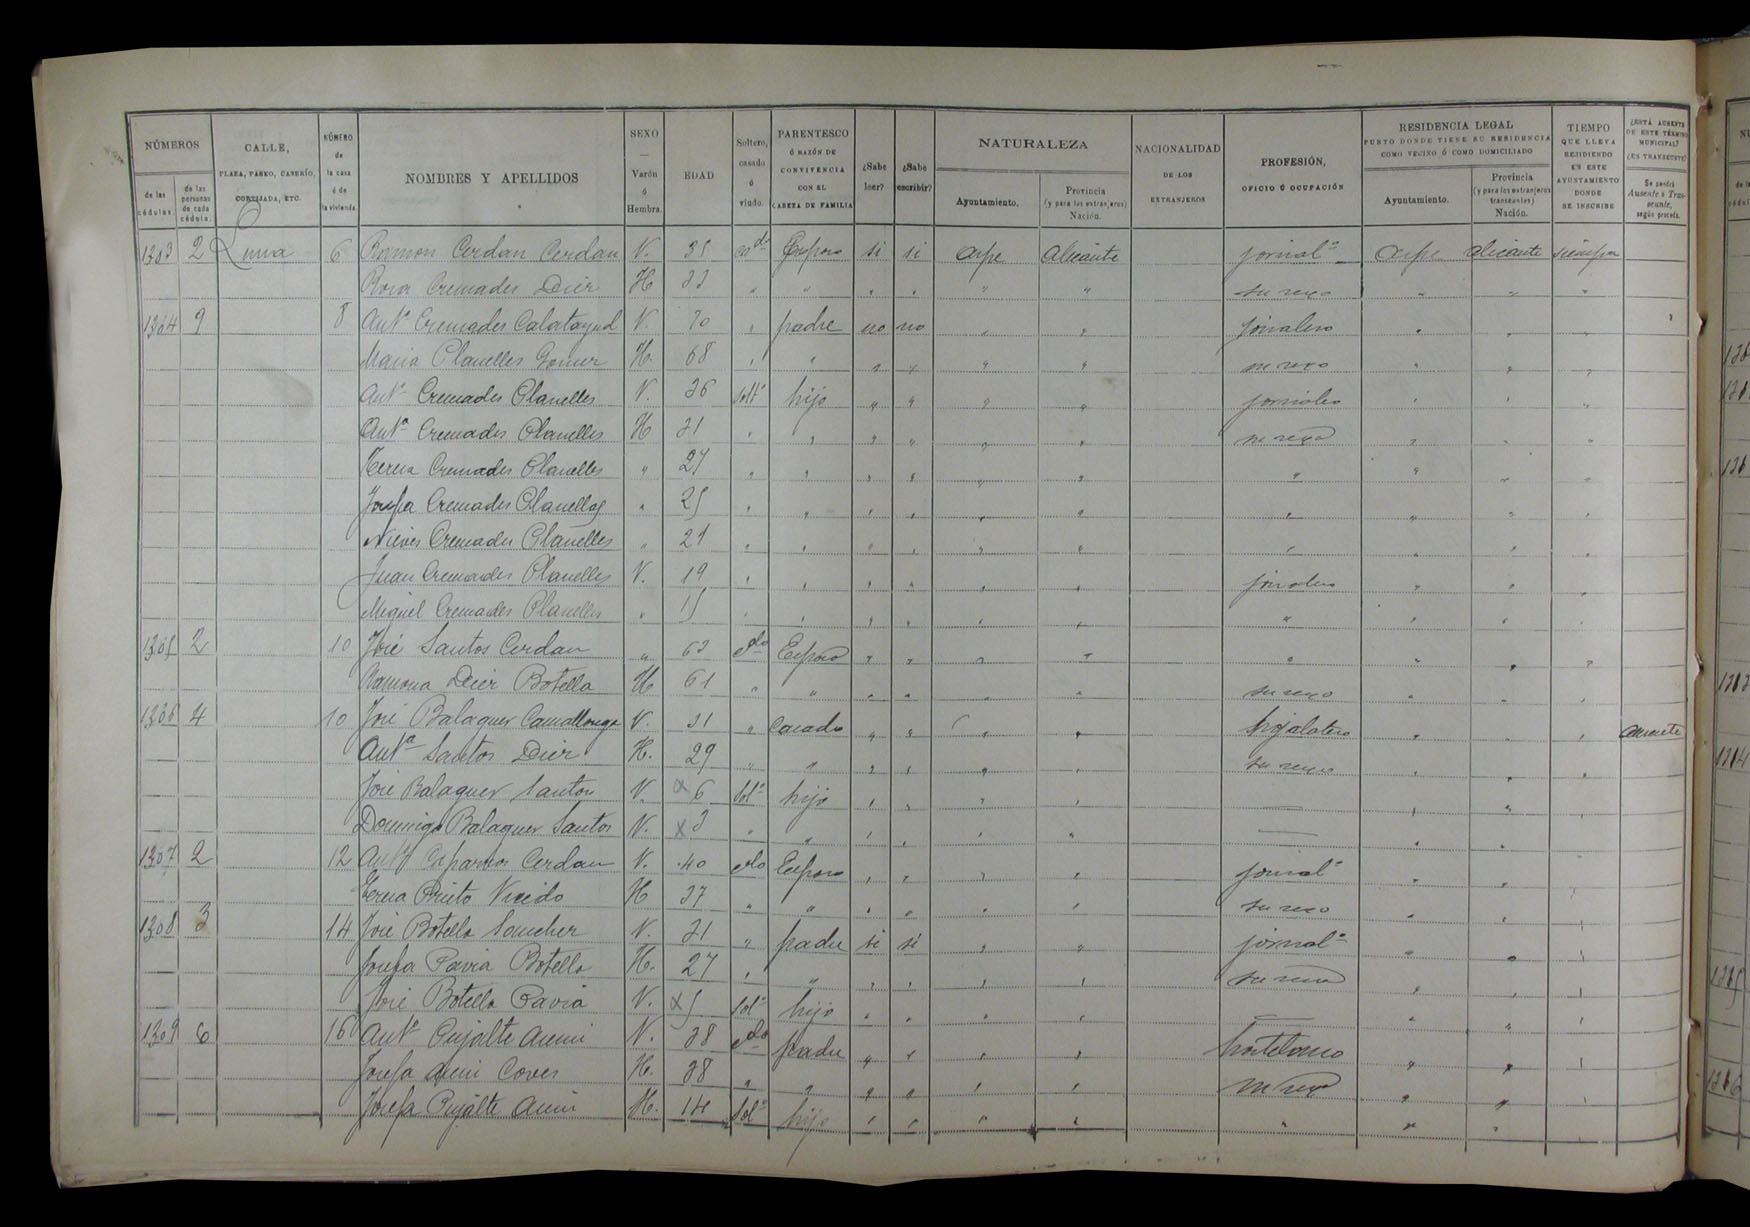 NÚMEROS
de las cédulas.
de las personas de cada cédula.
CALLE,
PLAZA, PASEO, CASERÍO, CORTIJADA, ETC.
NÚMERO de la casa ó de la vivienda
NOMBRES Y APELLIDOS
SEXO — Varón ó Hembra.
EDAD
Soltero, casado ó viudo.
PARENTESCO Ó RAZÓN DE CONVIVENCIA CON EL CABEZA DE FAMILIA
¿Sabe leer?
¿Sabe escribir?
NATURALEZA
Ayuntamiento.
Provincia (y para los extranjeros) Nación.
NACIONALIDAD DE LOS EXTRANJEROS
PROFESIÓN, OFICIO Ú OCUPACIÓN
RESIDENCIA LEGAL
PUNTO DONDE TIENE SU RESIDENCIA COMO VECINO Ó COMO DOMICILIADO
Ayuntamiento.
Provincia (y para los extranjeros transeuntes) Nación.
TIEMPO QUE LLEVA RESIDIENDO EN ESTE AYUNTAMIENTO DONDE SE INSCRIBE
¿ESTÁ AUSENTE DE ESTE TÉRMINO MUNICIPAL? (ES TRANSEUNTE)
Se pondrá Ausente ó Transeunte, según proceda.
1303 2 Luna 6 Ramon Cerdan Cerdan V. 35 cdo Esposo si si Aspe Alicante jornalo Aspe Alicante siempre
Rosa Cremades Dier H 33 " " " " " " su sexo " " "
1304 9 8 Anto Cremades Calatayud V. 70 " padre no no " " jornalero " " "
Maria Planelles Gomer H. 68 " " " " " " su sexo " " "
Anto Cremades Planelles V. 36 solto hijo " " " " jornalero " " "
Anta Cremades Planelles H 31 " " " " " " su sexo " " "
Teresa Cremades Planelles " 27 " " " " " " " " " "
Josefa Cremades Planelles " 25 " " " " " " " " " "
Nieves Cremades Planelles " 21 " " " " " " " " " "
Juan Cremades Planelles V. 19 " " " " " " jornalero " " "
Miguel Cremades Planelles " 15 " " " " " " " " " "
1305 2 10 José Santos Cerdan " 63 cdo Esposo " " " " " " " "
Ramona Dier Botella H 61 " " " " " " su sexo " " "
1306 4 10 José Balaguer Camallonga V. 31 " casado " " " " hojalatero " " " ausente
Anta Santos Dier H. 29 " " " " " " su sexo " " "
José Balaguer Santos V. 6 solo hijo " " " " — " " "
Domingo Balaguer Santos V. 3 " " " " " " — " " "
1307 2 12 Anto Caparros Cerdan V. 40 cdo Esposo " " " " jornalo " " "
Teresa Prieto Vicedo H 37 " " " " " " su sexo " " "
1308 3 14 José Botella Sancher V. 31 " padre si si " " jornalo " " "
Josefa Pavia Botella H. 27 " " " " " " su sexo " " "
José Botella Pavia V. 5 solo hijo " " " " — " " "
1309 6 16 Anto Pujalte V. 38 cdo padre " " " " hortelano " " "
Josefa Coves H. 38 " " " " " " su sexo " " "
Josefa Pujalte H. 14 sola hija " " " " " " " "